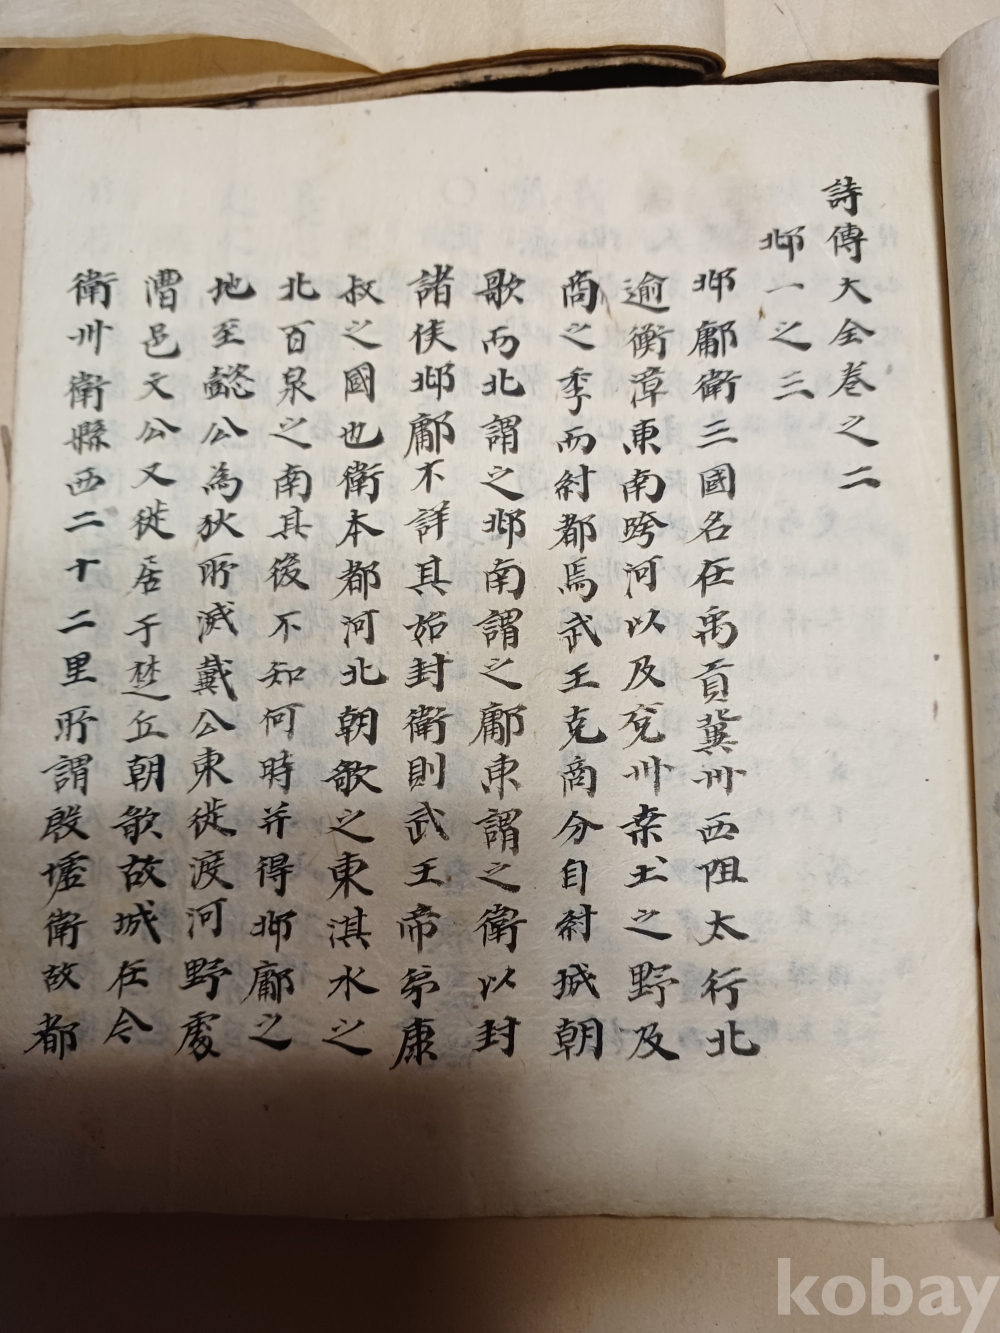 詩傳大全卷之二
邶一之三
邶鄘衛三國名在禹貢冀州西阻太行北
逾衡漳東南跨河以及兗州桒土之野及
商之季而紂都焉武王克商分自紂城朝
歌而北謂之邶南謂之鄘東謂之衛以封
諸侯邶鄘不詳其始封衛則武王帝弟康
叔之國也衛本都河北朝歌之東淇水之
北百泉之南其後不知何時并得邶鄘之
地至懿公為狄所滅戴公東徙渡河野處
漕邑文公又徙居于楚丘朝歌故城在今
衛州衛縣西二十二里所謂殷墟衛故都
kobay